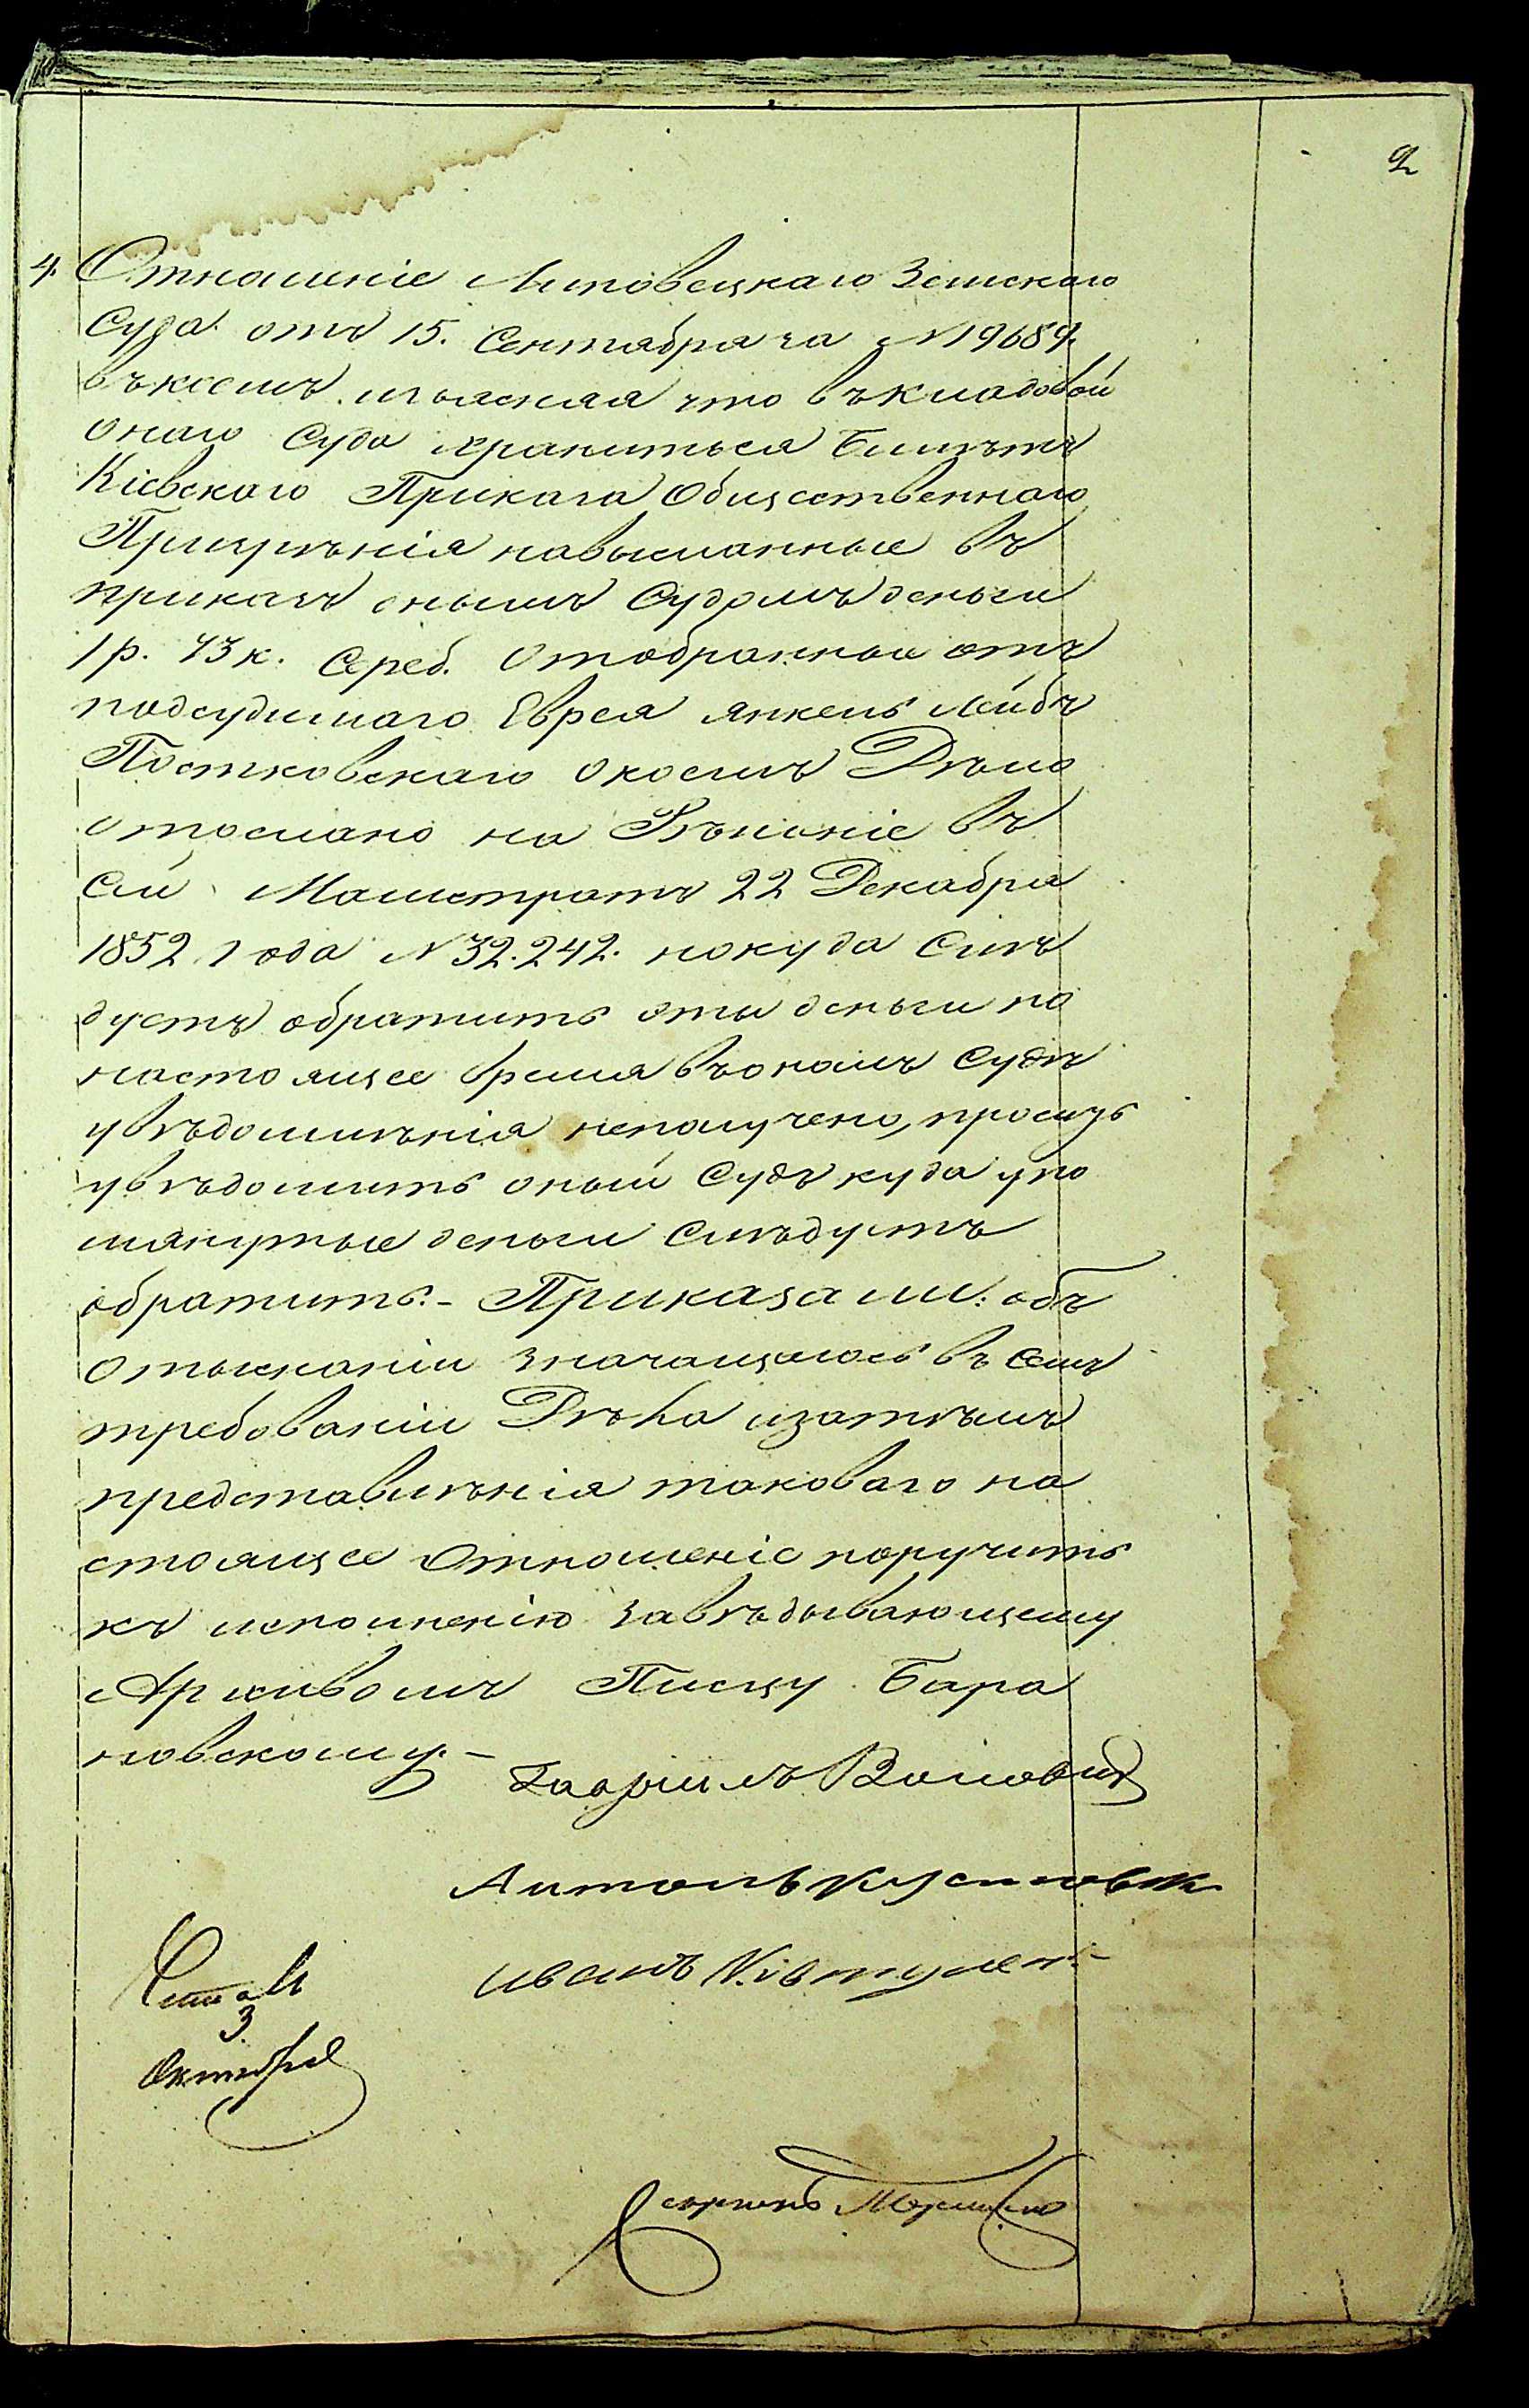 2
4. Отношеніе Липовецкаго Земскаго
Суда отъ 15. Сентабра за №19689.
въкоемъ изъясняя что въкладовой
онаго Суда храниться Билѣтъ
Кіевскаго Приказа Общественнаго
Призрѣнія навысланные въ
приказъ онымъ Судомъ деньги
1 р. 43 к. Сереб. Отобранные отъ
подсудимаго Еврея Янкель Лейбъ
Постковскаго окоемъ Дѣло
отослано на Рѣшеніе въ
Сей Магистратъ 22 Декабра
1852 года №32.242. покуда Слѣ
дуетъ обратить эты деньги по
настоящее время въономъ Судѣ
увѣдомлѣнія неполучено, просить
увѣдомить оный Судъ куда упо
мянутые деньги Слѣдуетъ
обратить.- Приказали: объ
отысканіи значащагося въ Семъ
требованіи Дѣла изатѣмъ
представлѣнія таковаго на
стоящее Отношеніе поручить
къ исполненію завѣдывающему
Архивомъ Писцу Бара
новскому.-
Гавріилъ
Антонъ
Иванъ
Читалъ
3
Октября